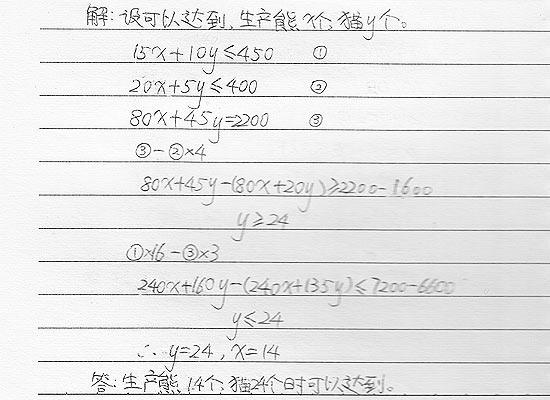 解:设可以达到,生产熊x个,猫y个。
15x+10y≤450 ①
20x+5y≤400 ②
80x+45y=2200 ③
③-②×4
80x+45y-(80x+20y)≥2200-1600
y≥24
①×16-③×3
240x+160y-(240x+135y)≤7200-6600
y≤24
∴y=24,x=14
答:生产熊14个,猫24个时可以达到。